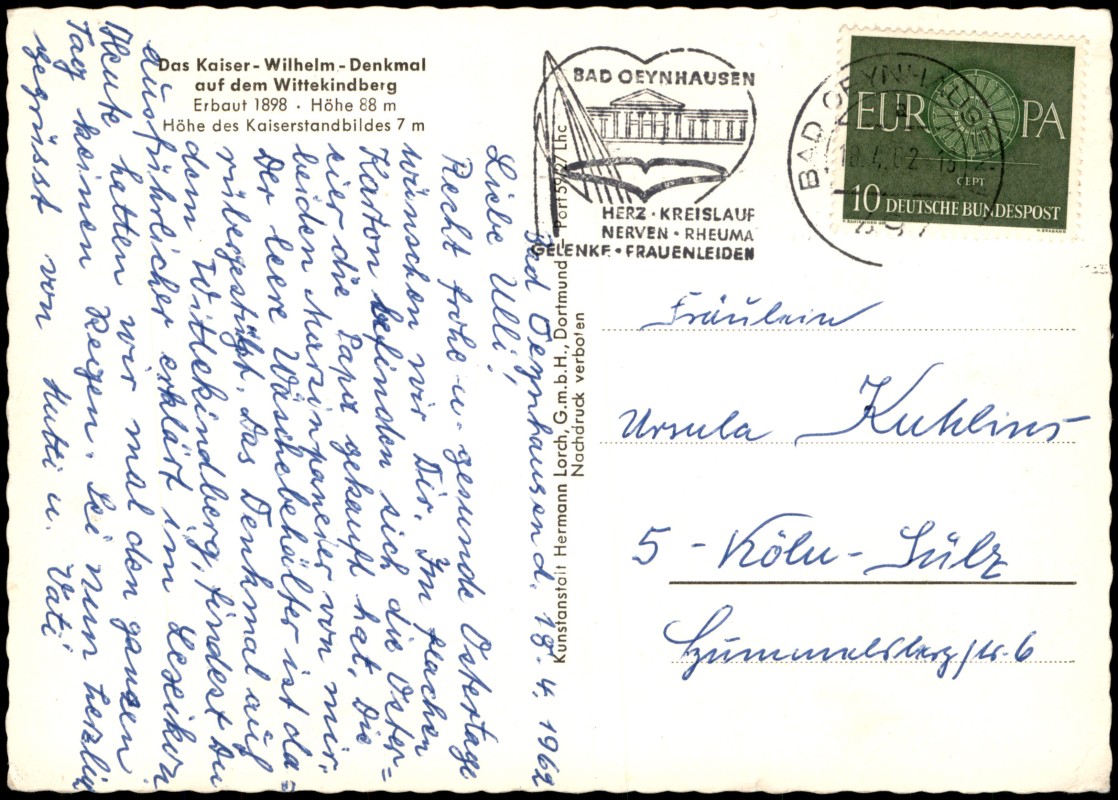 Das Kaiser-Wilhelm-Denkmal
auf dem Wittekindberg
Erbaut 1898 · Höhe 88 m
Höhe des Kaiserstandbildes 7 m
Bad Oeynhausen d. 18.4.1962
Liebe Ulli!
Recht frohe u. gesunde Ostertage
wünschen wir Dir. Im flachen
Karton befinden sich die Oster=
eier die Papa gekauft hat. Die
leiden Marzinpaneier von mir.
Der leere Wäschebehälter ist da=
rübergestülpt. Das Denkmal auf
dem Wittekindberg, findest Du
ausführlicher erklärt im Lexikon
Heute hatten wir mal den ganzen
Tag keinen Regen. Sei nun herzlich
gegrüsst von Mutti u. Vati
Kunstanstalt Hermann Lorch, G.m.b.H., Dortmund – Port 59/27 Lhc
Nachdruck verboten
BAD OEYNHAUSEN
HERZ · KREISLAUF
NERVEN · RHEUMA
GELENKE · FRAUENLEIDEN
BAD OEYNHAUSEN
a
EUROPA
CEPT
10 DEUTSCHE BUNDESPOST
Fräulein
Ursula Kuhlins
5 - Köln - Sülz
Hummelsbergstr. 6